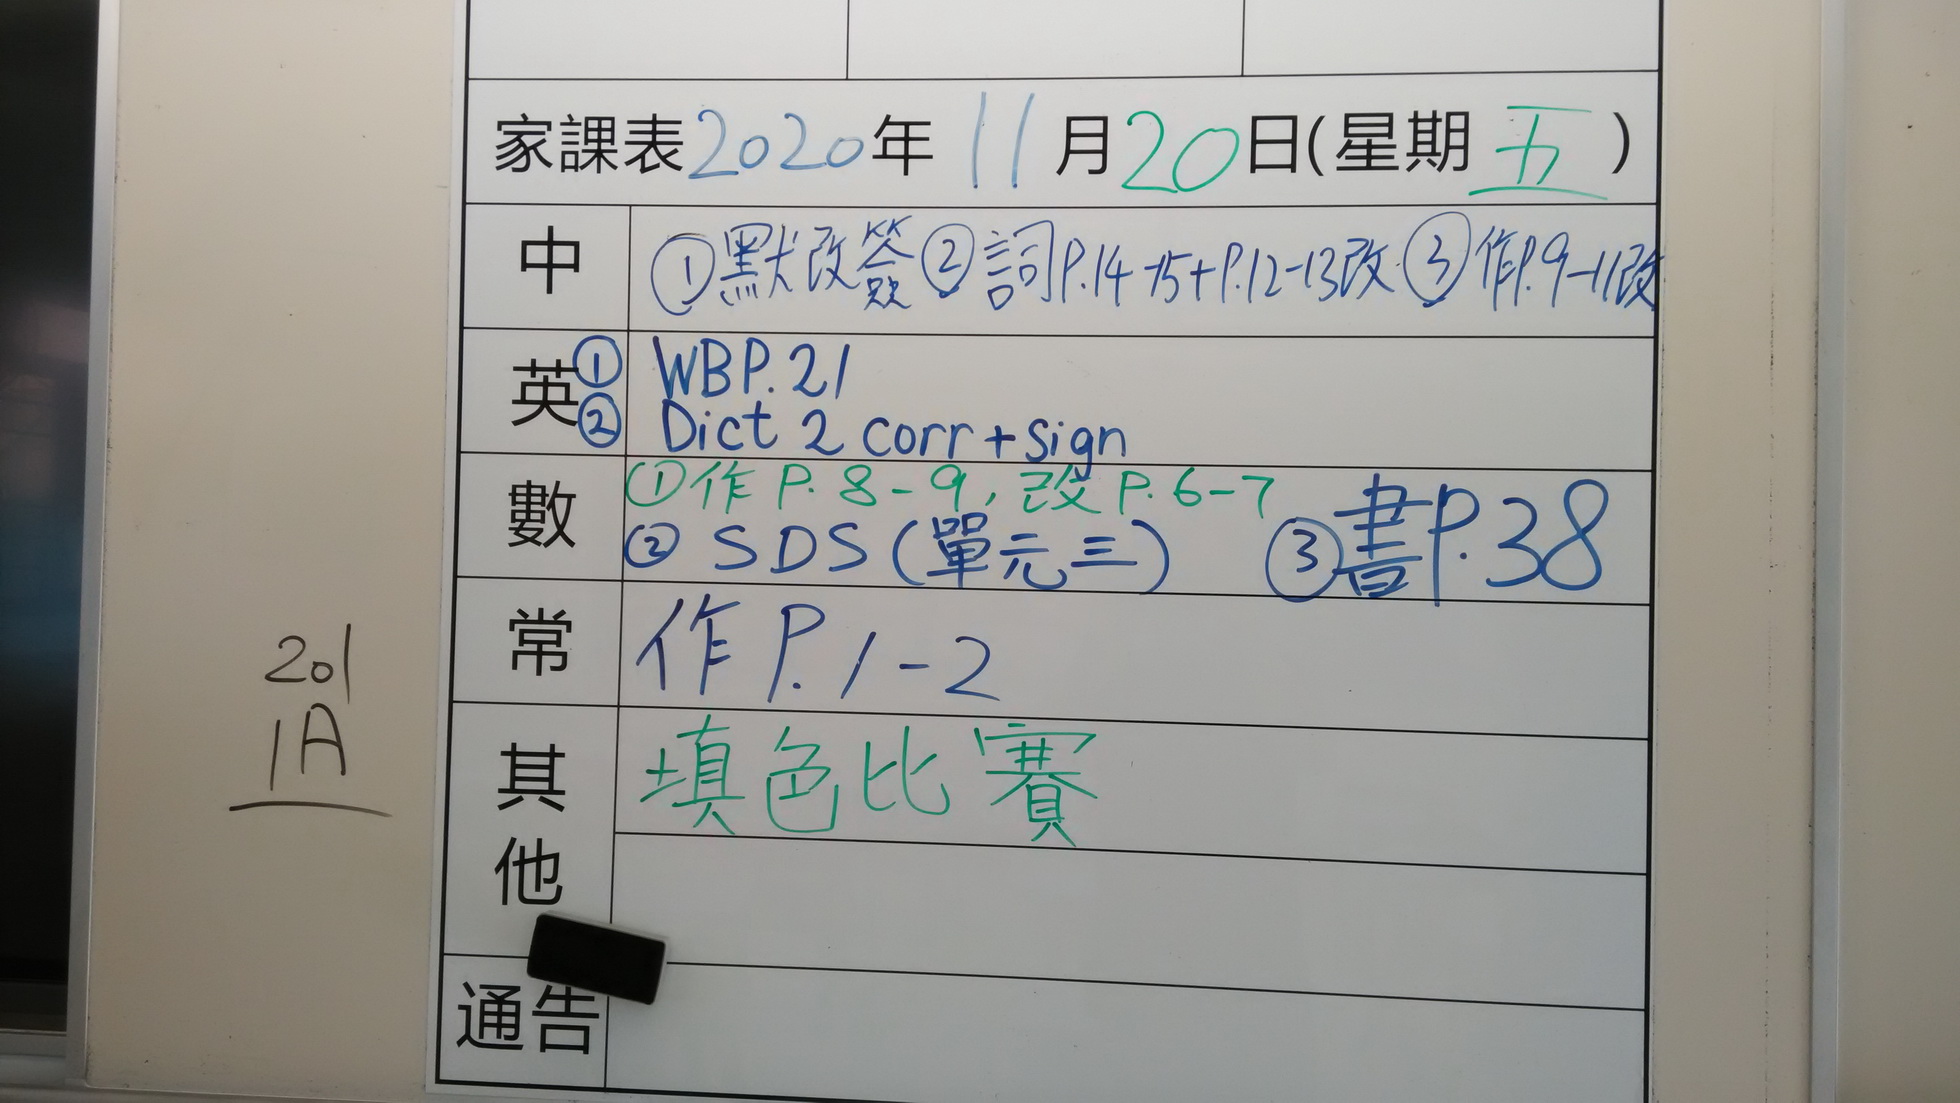 家課表2020年 11月20日(星期 五)
中 ①默改簽②詞P.14-15+P.12-13改 ③作P.9-11改
英① WBP.21
② Dict 2 corr+sign
數 ①作 P. 8-9, 改 P. 6-7
② SDS (單元三) ③書P.38
常 作 P. 1-2
其他 填色比賽
通告
201
1A